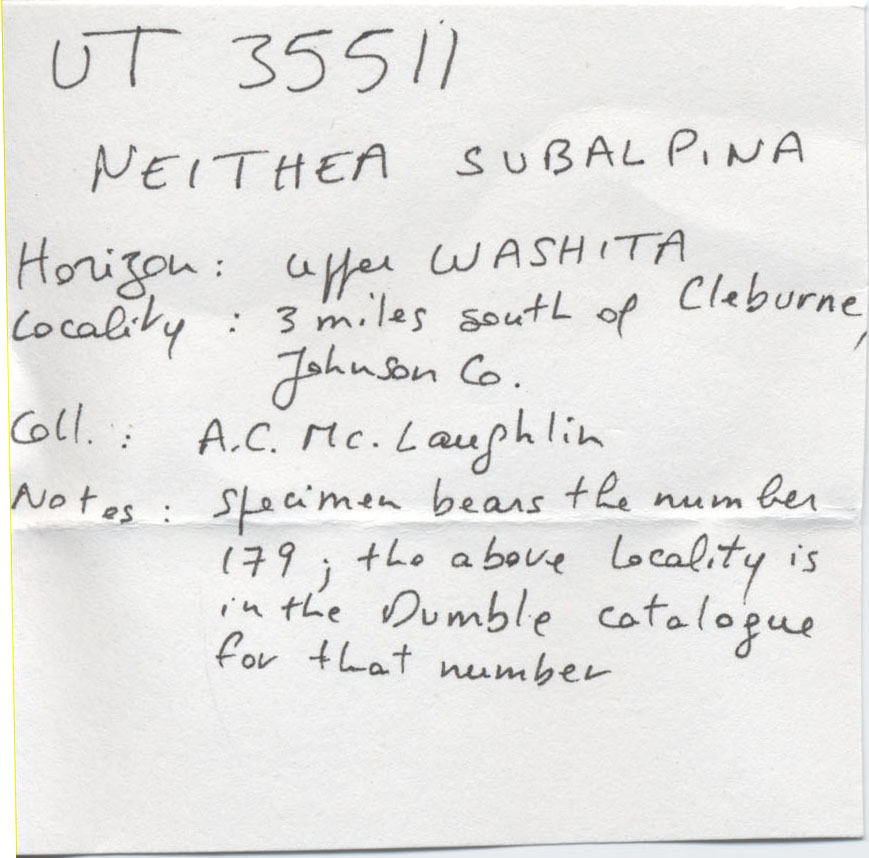 UT 35511
NEITHEA SUBALPINA
Horizon: upper WASHITA
Locality: 3 miles south of Cleburne,
Johnson Co.
Coll.: A.C. Mc. Laughlin
Notes: specimen bears the number
179; the above locality is
in the Dumble catalogue
for that number